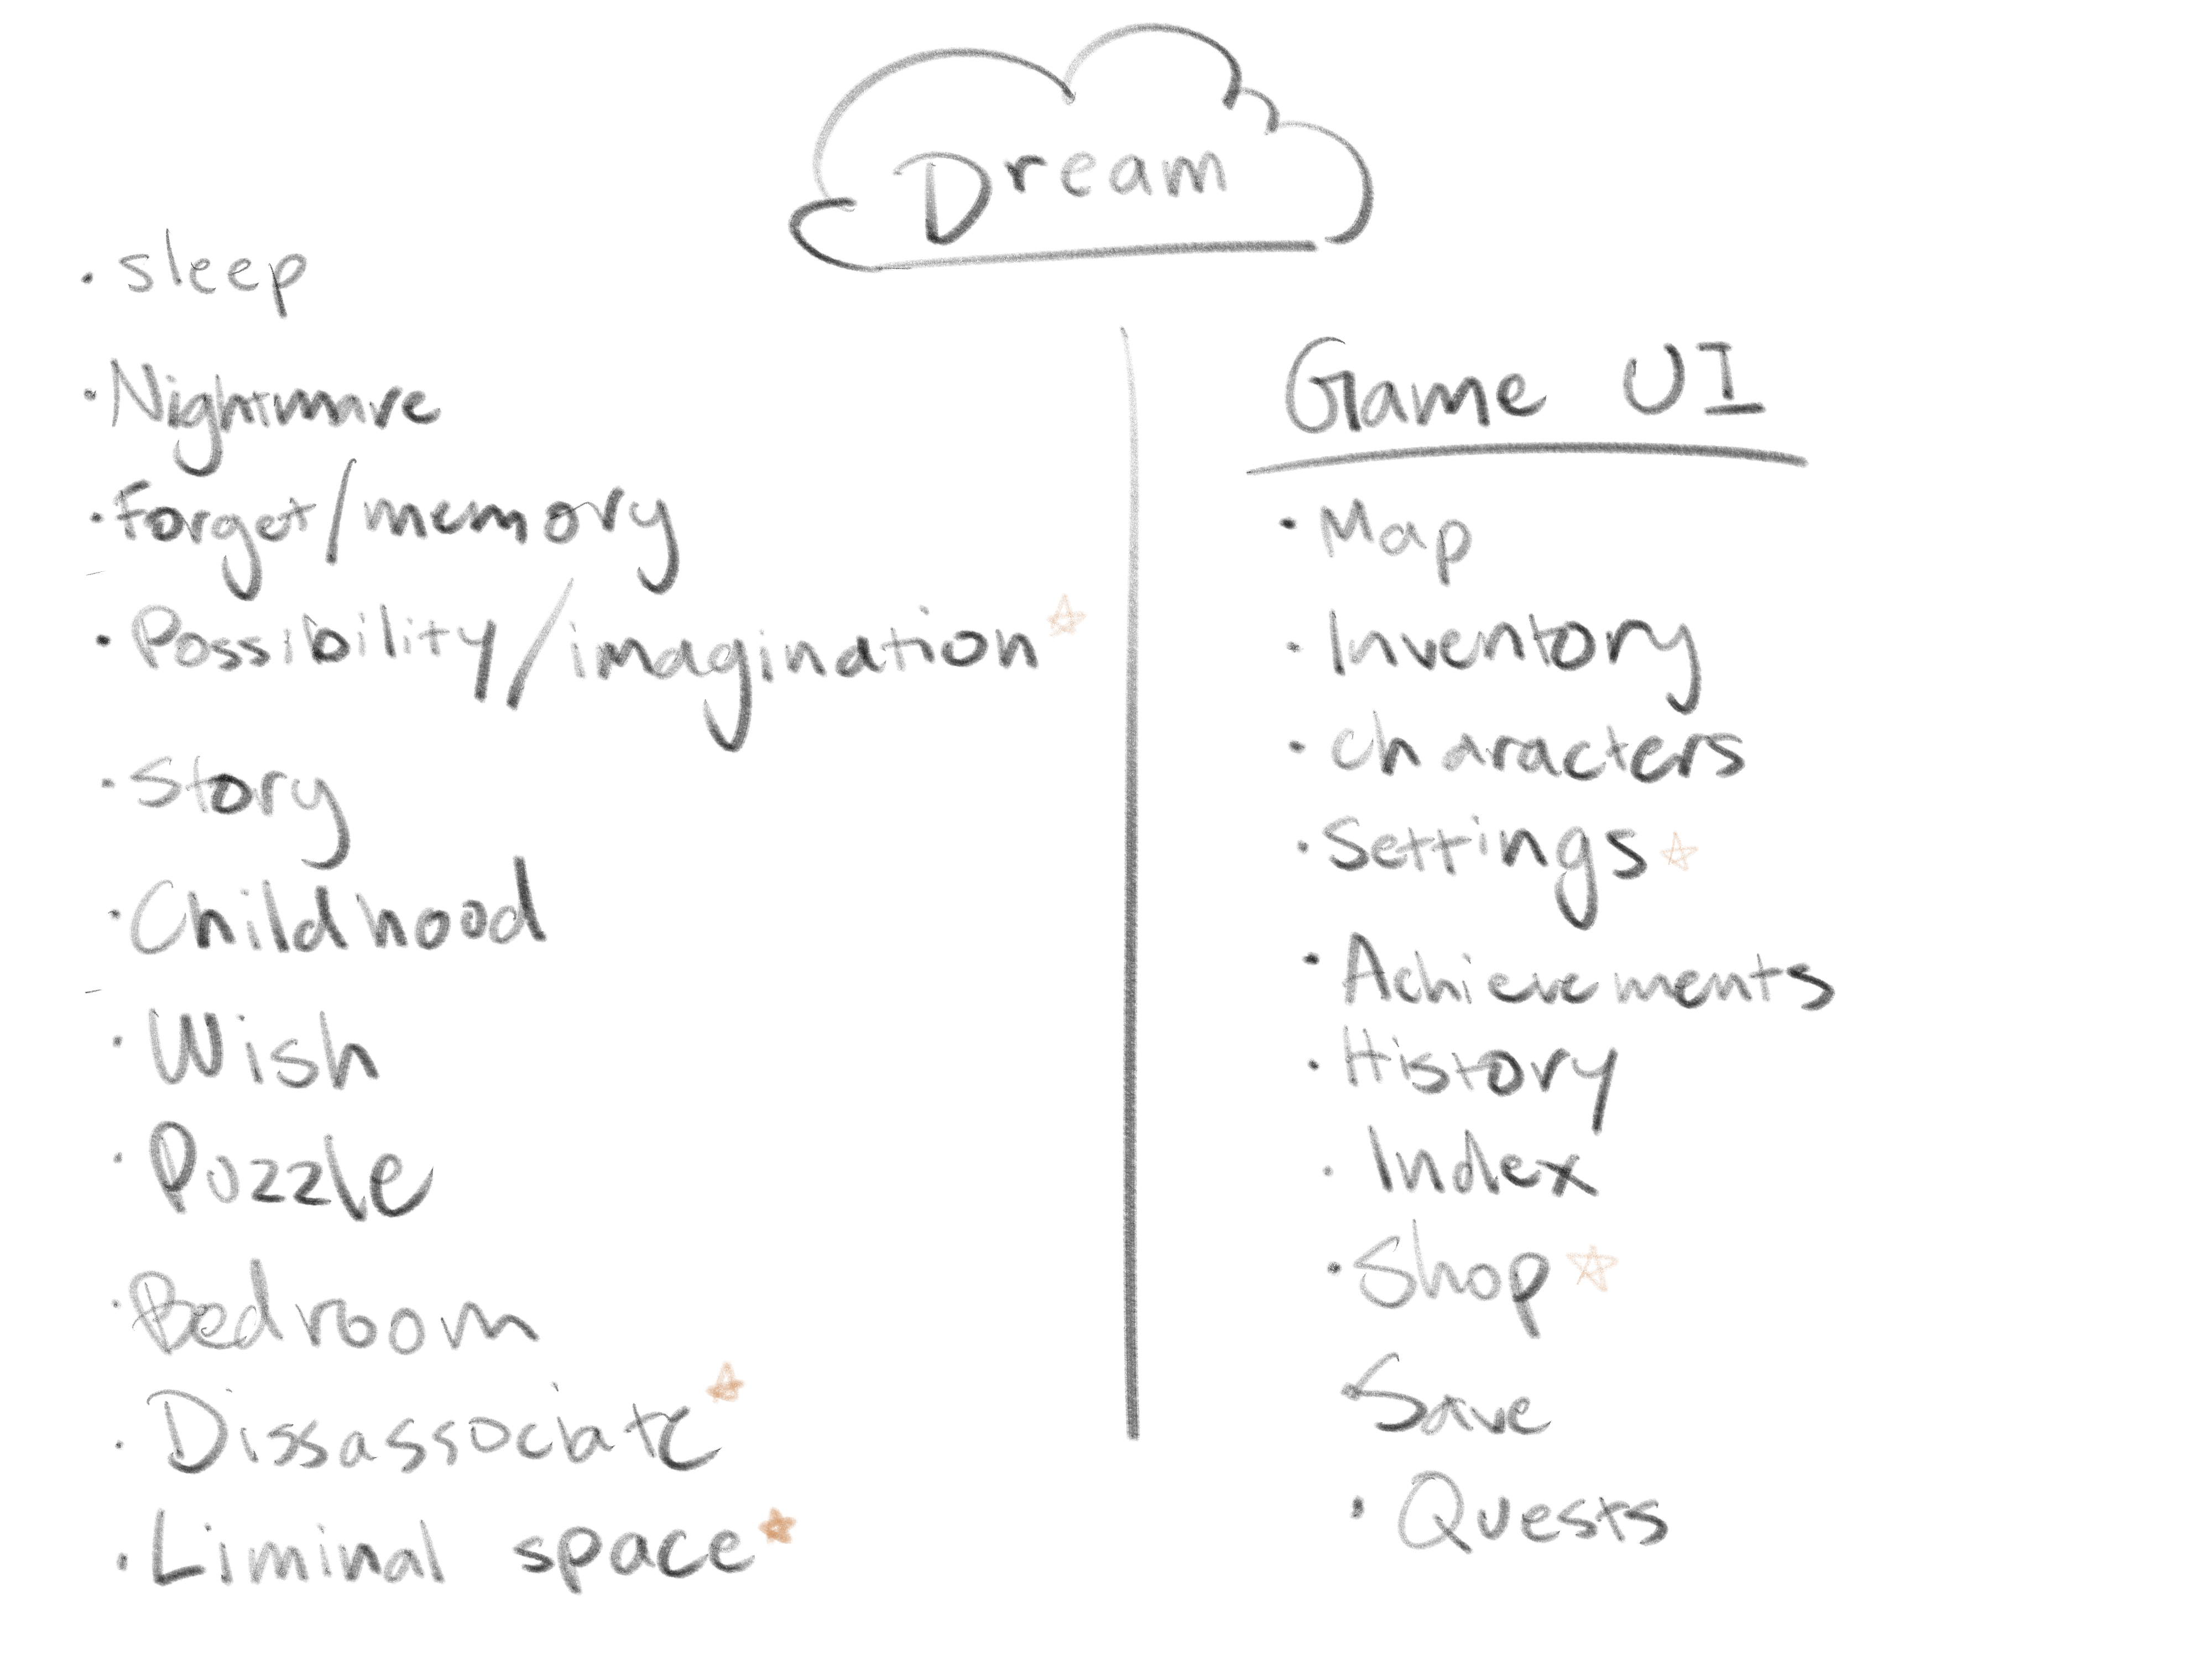 Dream
• sleep
• Nightmare
• Forget/memory
• Possibility/imagination
• Story
• Childhood
• Wish
• Puzzle
• Bedroom
• Dissassociate
• Liminal space
Game UI
• Map
• Inventory
• characters
• Settings
• Achievements
• History
• Index
• Shop
Save
• Quests